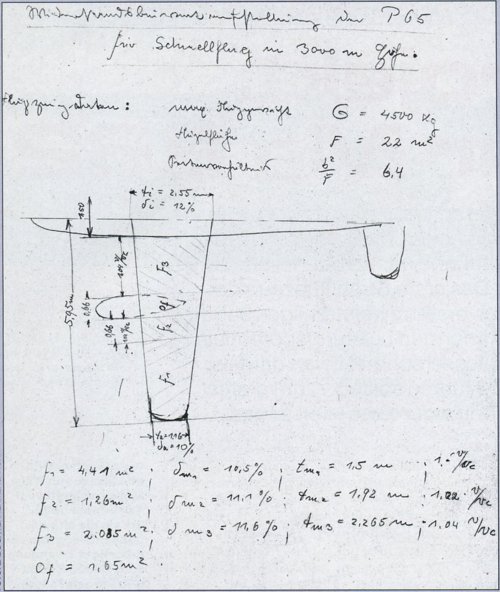 Widerstandsbeiwertaufstellung der P65
für Schnellflug in 3000 m Höhe.
Flugzeugdaten: max. Fluggewicht G = 4500 kg
Flügelfläche F = 22 m²
Seitenverhältnis b²/F = 6,4
ti = 2,55m
δi = 12%
450
5,95m
0,66
0,66
F3
0f
f2
f1
ta = 1,16
δa = 10%
f1 = 4,41 m² ; δm1 = 10,5% ; tm1 = 1,5 m ; v/vc
f2 = 1,26m² ; δm2 = 11,1% ; tm2 = 1,92 m ; 1,02 v/vc
f3 = 2,085 m² ; δm3 = 11,6% ; tm3 = 2,265 m ; 1,04 v/vc
0f = 1,65m²